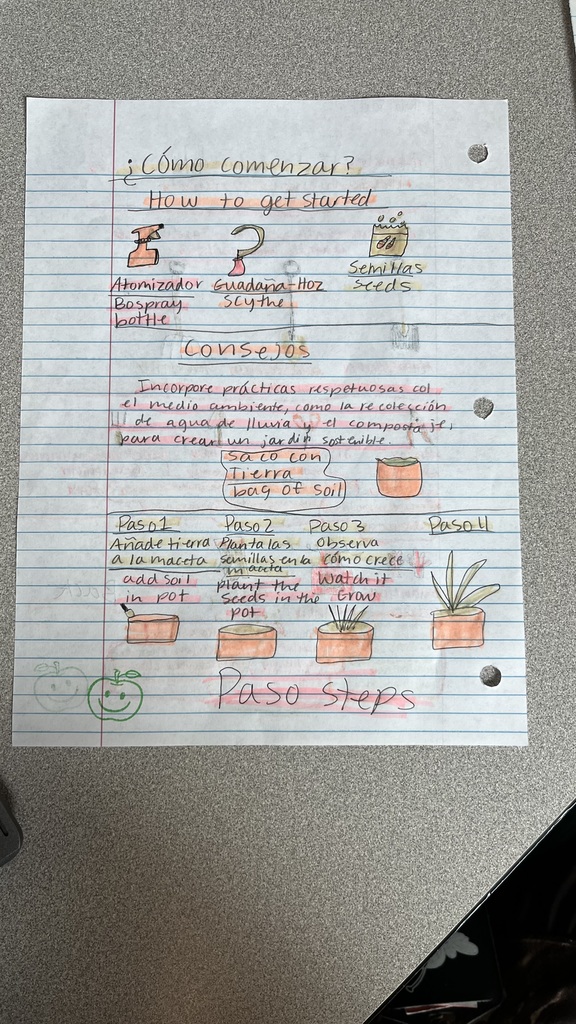 ¿Cómo comenzar?
How to get started
Atomizador
Bospray
bottle
Guadaña-Hoz
Scythe
Semillas
seeds
Consejos
Incorpore prácticas respetuosas col
el medio ambiente, como la recolección
de agua de lluvia y el compostaje,
para crear un jardín sostenible.
Saco con
Tierra
bag of soil
Paso 1
Añade tierra
a la maceta
add soil
in pot
Paso 2
Planta las
semillas en la
maceta
plant the
seeds in the
pot
Paso 3
Observa
cómo crece
Watch it
Grow
Paso 4
Paso steps